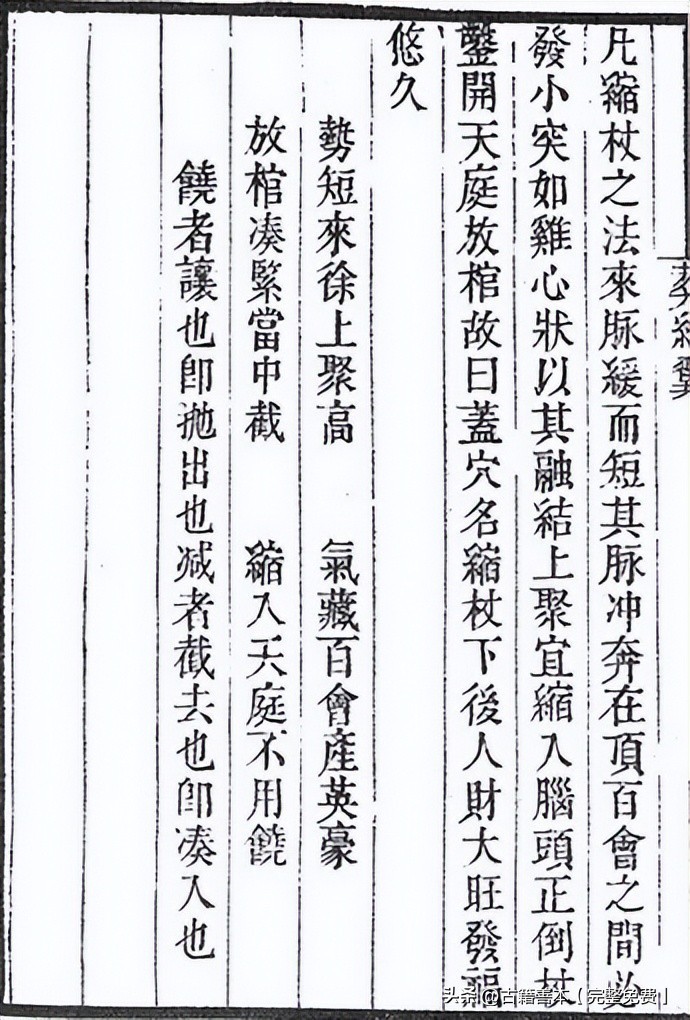 凡縮杖之法來脉緩而短其脉冲奔在頂百會之間必
發小突如雞心狀以其融結上聚宜縮入腦頭正倒杖
鑿開天庭放棺故曰蓋穴名縮杖下後人財大旺發福
悠久
勢短來徐上聚高 氣藏百會產英豪
放棺凑緊當中截 縮入天庭不用饒
饒者讓也卽抛出也减者截去也卽凑入也
头条@古籍善本【完整免费】